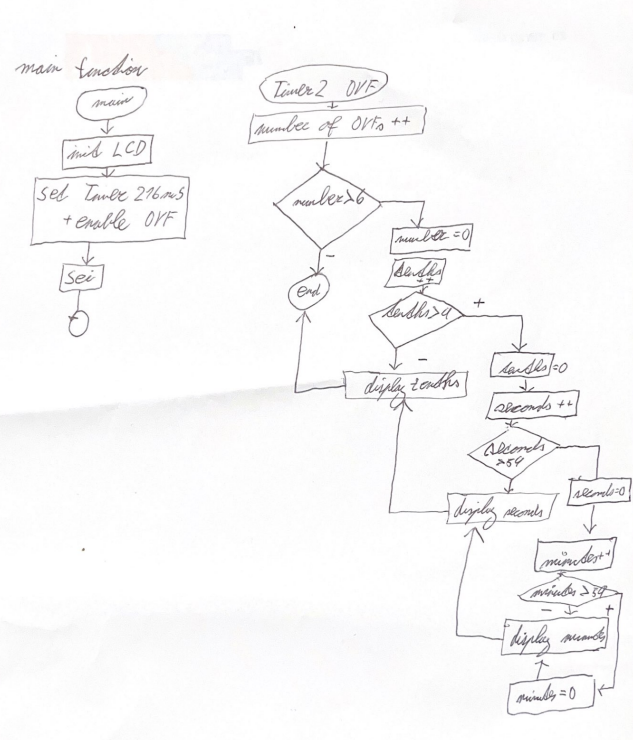 main function
main
init LCD
set Timer 2 16ms
+ enable OVF
sei
Timer2 OVF
number of OVFs ++
number>6
-
end
number=0
tenths
++
tenths>9
+
-
display tenths
tenths=0
seconds ++
seconds
>59
seconds=0
display seconds
minutes++
minutes >59
-
+
display minutes
minutes=0